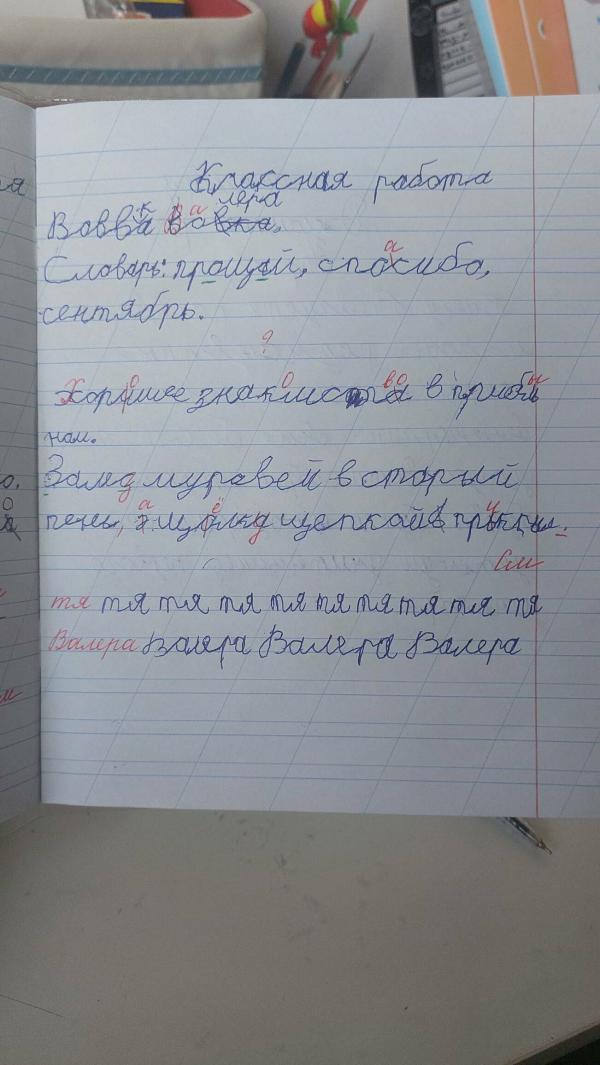 Классная работа
лера
Вовка Вовка.
Словарь: прощай, спасибо,
сентябрь.
?
Хорошее знакомство в
ном.
Залез муравей в старый
пень, а щёлкд щепкой в
См
тя тя тя тя тя тя тя тя тя
Валера Валера Валера Валера